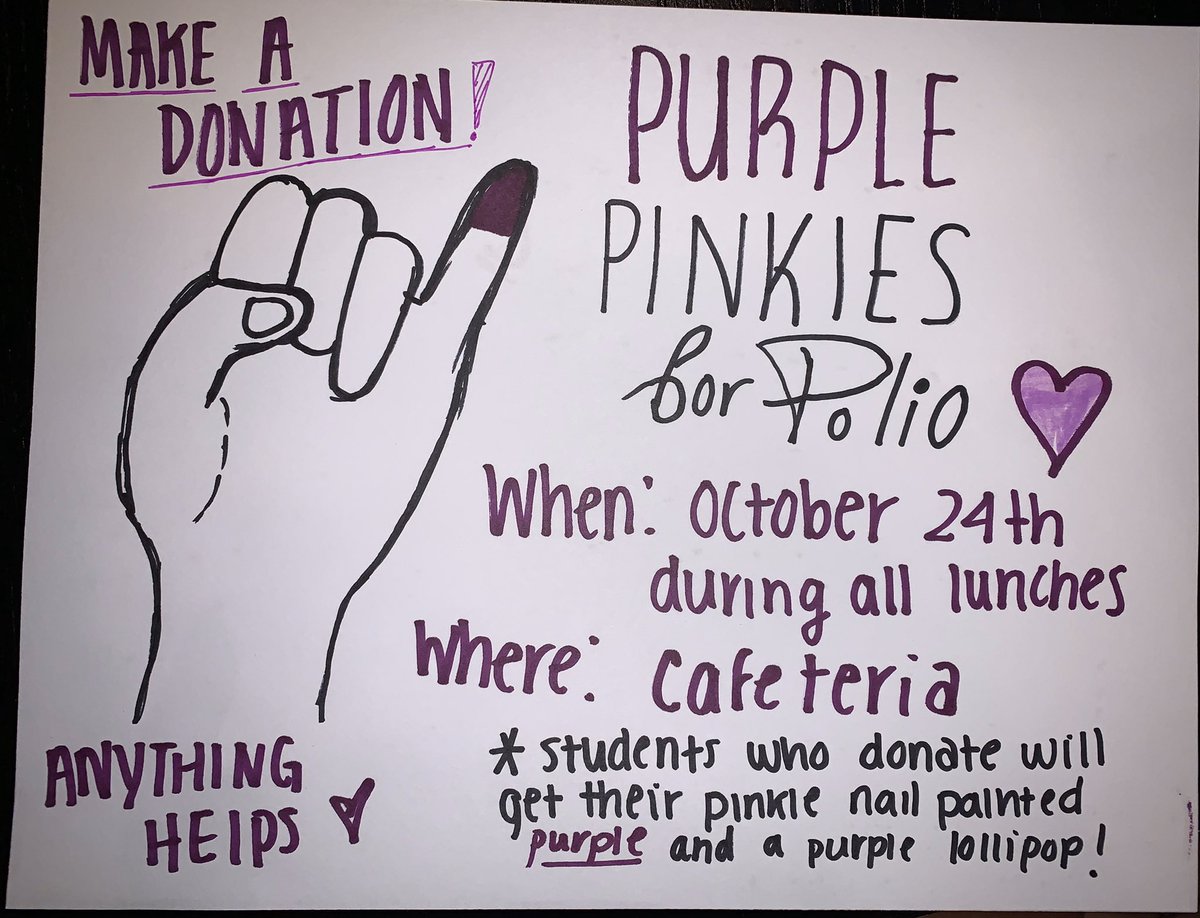 MAKE A
DONATION!
PURPLE
PINKIES
for Polio
When: October 24th
during all lunches
Where: Cafeteria
*students who donate will
get their pinkie nail painted
purple and a purple lollipop!
ANYTHING
HElPS